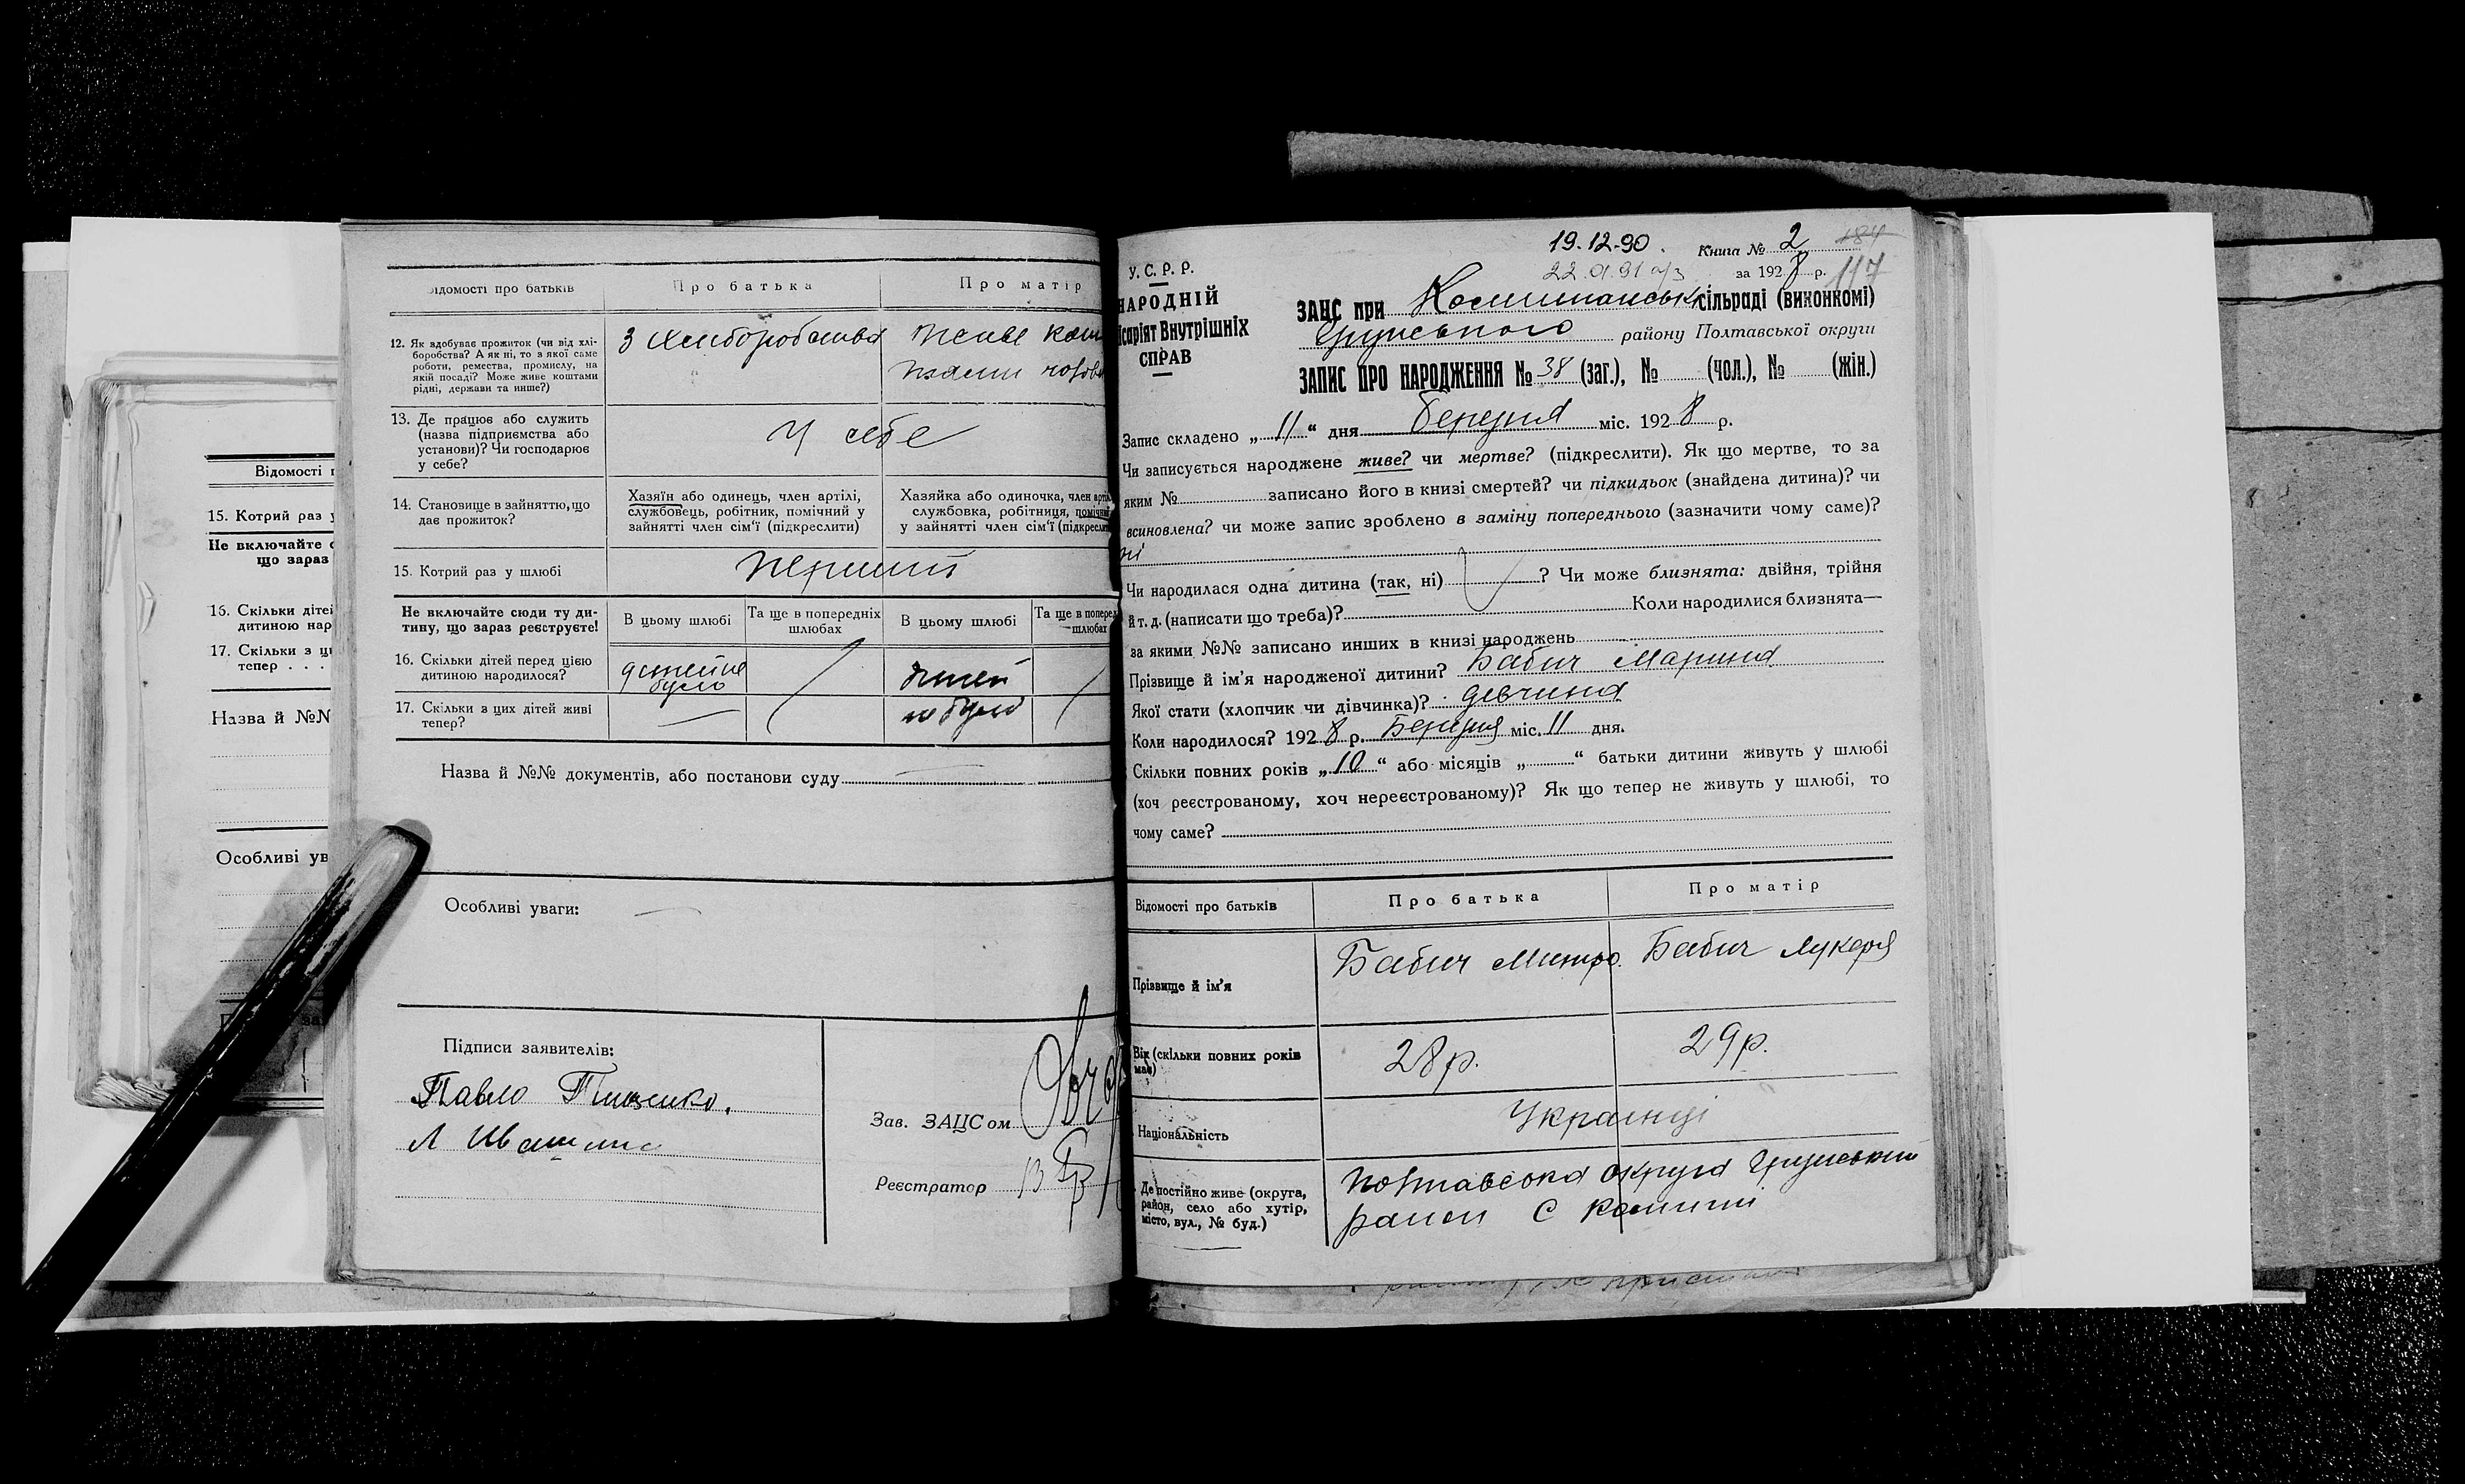 Відомості п
15. Котрий раз у
Не включайте с
що зараз
16. Скільки дітей
дитиною нар
17. Скільки з ци
тепер . . .
Назва й №№
Особливі ув
ідомості про батьків
Про батька
Про матір
12. Як здобуває прожиток (чи від хлі-
боробства? А як ні, то з якої саме
роботи, ремества, промислу, на
якій посаді? Може живе коштами
рідні, держави та инше?)
З хліборобства
13. Де працює або служить
(назва підприємства або
установи)? Чи господарює
у себе?
У себе
14. Становище в зайняттю, що
дає прожиток?
Хазяїн або одинець, член артілі,
службовець, робітник, помічний у
зайнятті член сім'ї (підкреслити)
Хазяйка або одиночка, член арті
службовка, робітниця, поміч
у зайнятті член сім'ї (підкресли
15. Котрий раз у шлюбі
Перший
Не включайте сюди ту ди-
тину, що зараз реєструєте!
В цьому шлюбі
Та ще в попередніх
шлюбах
В цьому шлюбі
Та ще в поперед
шлюбах
16. Скільки дітей перед цією
дитиною народилося?
було
17. Скільки з цих дітей живі
тепер?
Назва й №№ документів, або постанови суду
Особливі уваги:
Підписи заявителів:
Павло
Л
Зав. ЗАЦСом
Реєстратор
19.12.90.
Книга № 2
184
22.01.91
за 1928 р.
117
У.С.Р.Р.
НАРОДНІЙ
ісаріят Внутрішніх
СПРАВ
ЗАЦС при сільраді (виконкомі)
Грунського району Полтавської округи
ЗАПИС ПРО НАРОДЖЕННЯ № 38 (заг.), № (чол.), № (жін.)
Запис складено „11" дня Березня міс. 1928 р.
Чи записується народжене живе? чи мертве? (підкреслити). Як що мертве, то за
яким № записано його в книзі смертей? чи підкидьок (знайдена дитина)? чи
всиновлена? чи може запис зроблено в заміну попереднього (зазначити чому саме)?
ні
Чи народилася одна дитина (так, ні) ? Чи може близнята: двійня, трійня
й т. д. (написати що треба)? Коли народилися близнята—
за якими №№ записано инших в книзі народжень
Прізвище й ім'я народженої дитини? Бабич Марина
Якої стати (хлопчик чи дівчинка)? девчина
Коли народилося? 1928 р. Березня міс. 11 дня.
Скільки повних років „10" або місяців „ " батьки дитини живуть у шлюбі
(хоч реєстрованому, хоч нереєстрованому)? Як що тепер не живуть у шлюбі, то
чому саме?
Відомості про батьків
Про батька
Про матір
Прізвище й ім'я
Бабич Митро.
Бабич Лукеря
Вік (скільки повних років
має)
28р.
29р.
Національність
Українці
Де постійно живе (округа,
район, село або хутір,
місто, вул., № буд.)
Полтавська округа Грунський
район С Комиші